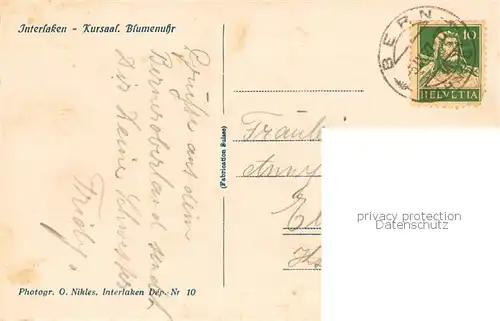 Interlaken - Kursaal. Blumenuhr
Grüsse aus dem
Berneroberland sendet
Dir Deine Schwester
Fridy.
(Fabrication Suisse)
BERN
10
HELVETIA
Fräulei
Anny
privacy protection
Datenschutz
Photogr. O. Nikles. Interlaken Dép. Nr 10